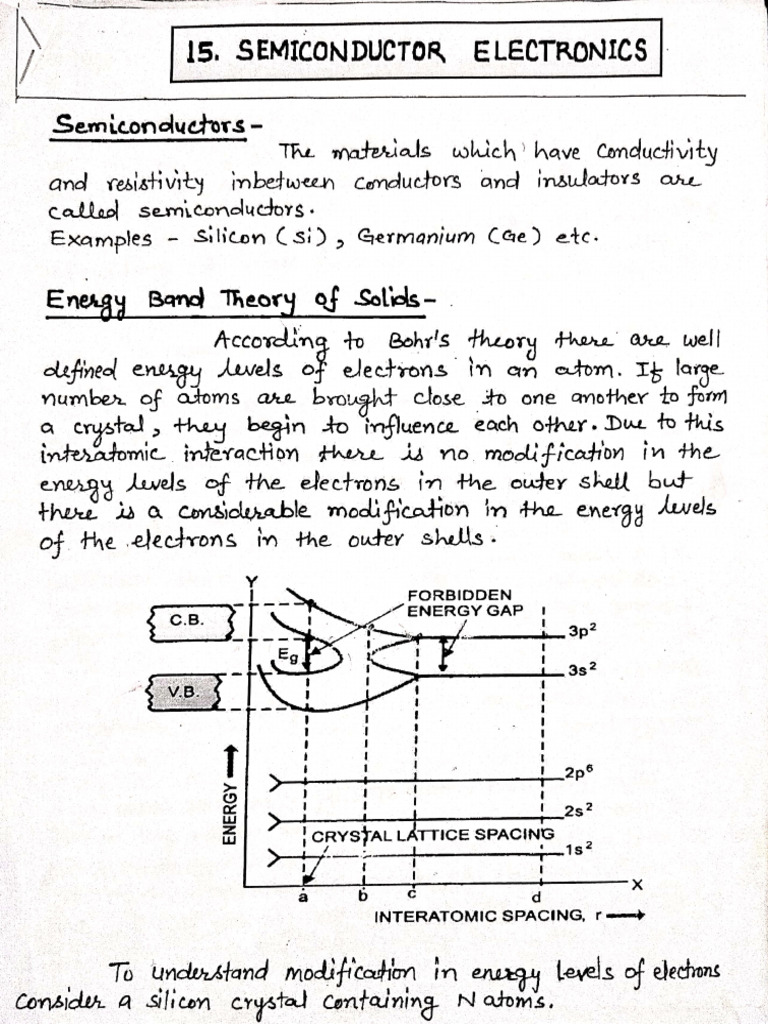 15. SEMICONDUCTOR ELECTRONICS
Semiconductors -
The materials which have conductivity
and resistivity inbetween conductors and insulators are
called semiconductors.
Examples - Silicon (Si), Germanium (Ge) etc.
Energy Band Theory of Solids -
According to Bohr's theory there are well
defined energy levels of electrons in an atom. If large
number of atoms are brought close to one another to form
a crystal, they begin to influence each other. Due to this
interatomic interaction there is no modification in the
energy levels of the electrons in the outer shell but
there is a considerable modification in the energy levels
of the electrons in the outer shells.
Y
FORBIDDEN
ENERGY GAP
C.B.
3p²
Eg
3s²
V.B.
2p⁶
ENERGY
2s²
CRYSTAL LATTICE SPACING
1s²
X
a b c d
INTERATOMIC SPACING, r
To understand modification in energy levels of electrons
Consider a silicon crystal containing N atoms.